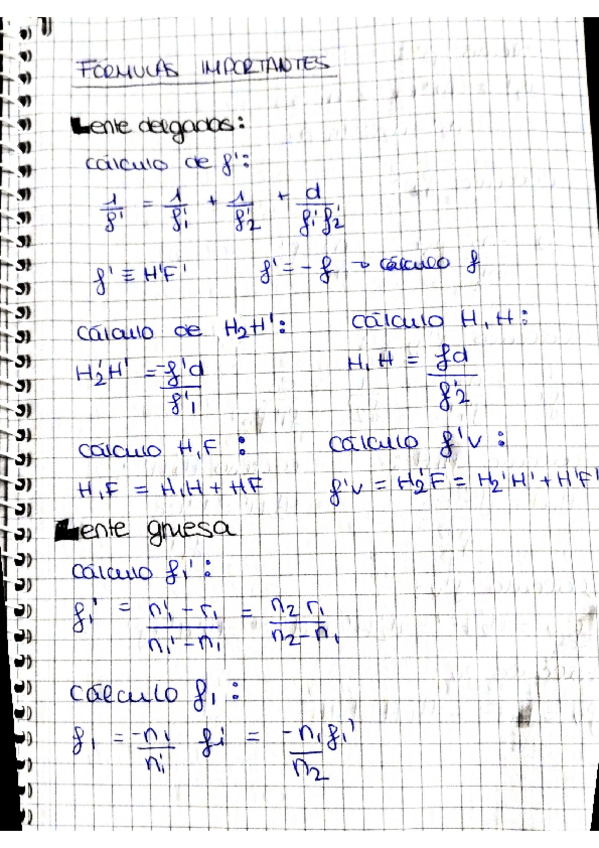 FÓRMULAS IMPORTANTES
Lente delgadas:
cálculo de f':
1/f' = 1/f'1 + 1/f'2 + d/f'1 f'2
f' ≡ H'F' f' = -f → cálculo f
cálculo de H2H': cálculo H1H:
H'2H' = -f'd/f'1 H1H = fd/f'2
cálculo H1F: cálculo f'v:
H1F = H1H + HF f'v = H'2F = H2'H' + H'F'
Lente gruesa
cálculo f1':
f1' = n'1 - r1/n1' - n1 = n2 r1/n2 - n1
cálculo f1:
f1 = -n1/n'1 f1' = -n1 f1'/n2